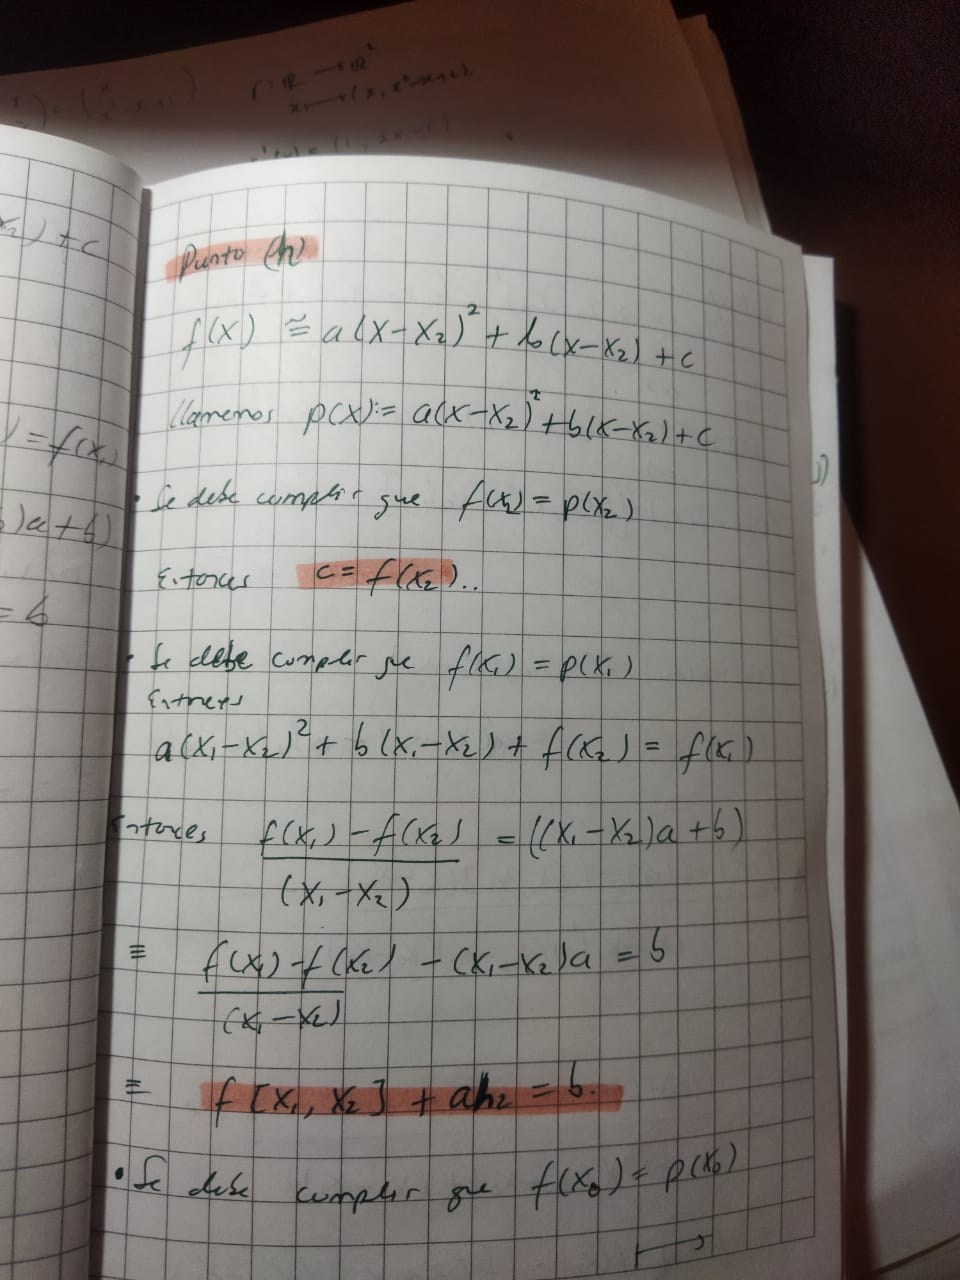 r: ℝ → ℝ²
x ↦ (x, x²-x+2).
x₂) + c
) = f(x₁)
)a + b)
= b
Punto (h)
f(x) ≅ a(x-x₂)² + b(x-x₂) + c
Llamemos p(x):= a(x-x₂)² + b(x-x₂) + c
• Se debe cumplir que f(x₂) = p(x₂)
Entonces c = f(x₂)..
• Se debe cumplir que f(x₁) = p(x₁)
Entonces
a(x₁-x₂)² + b(x₁-x₂) + f(x₂) = f(x₁)
Entonces f(x₁) - f(x₂) / (x₁-x₂) = ((x₁-x₂)a + b)
≡ f(x₁) - f(x₂) / (x₁-x₂) - (x₁-x₂)a = b
≡ f[x₁, x₂] + ah₂ = b.
• Se debe cumplir que f(x₀) = p(x₀)